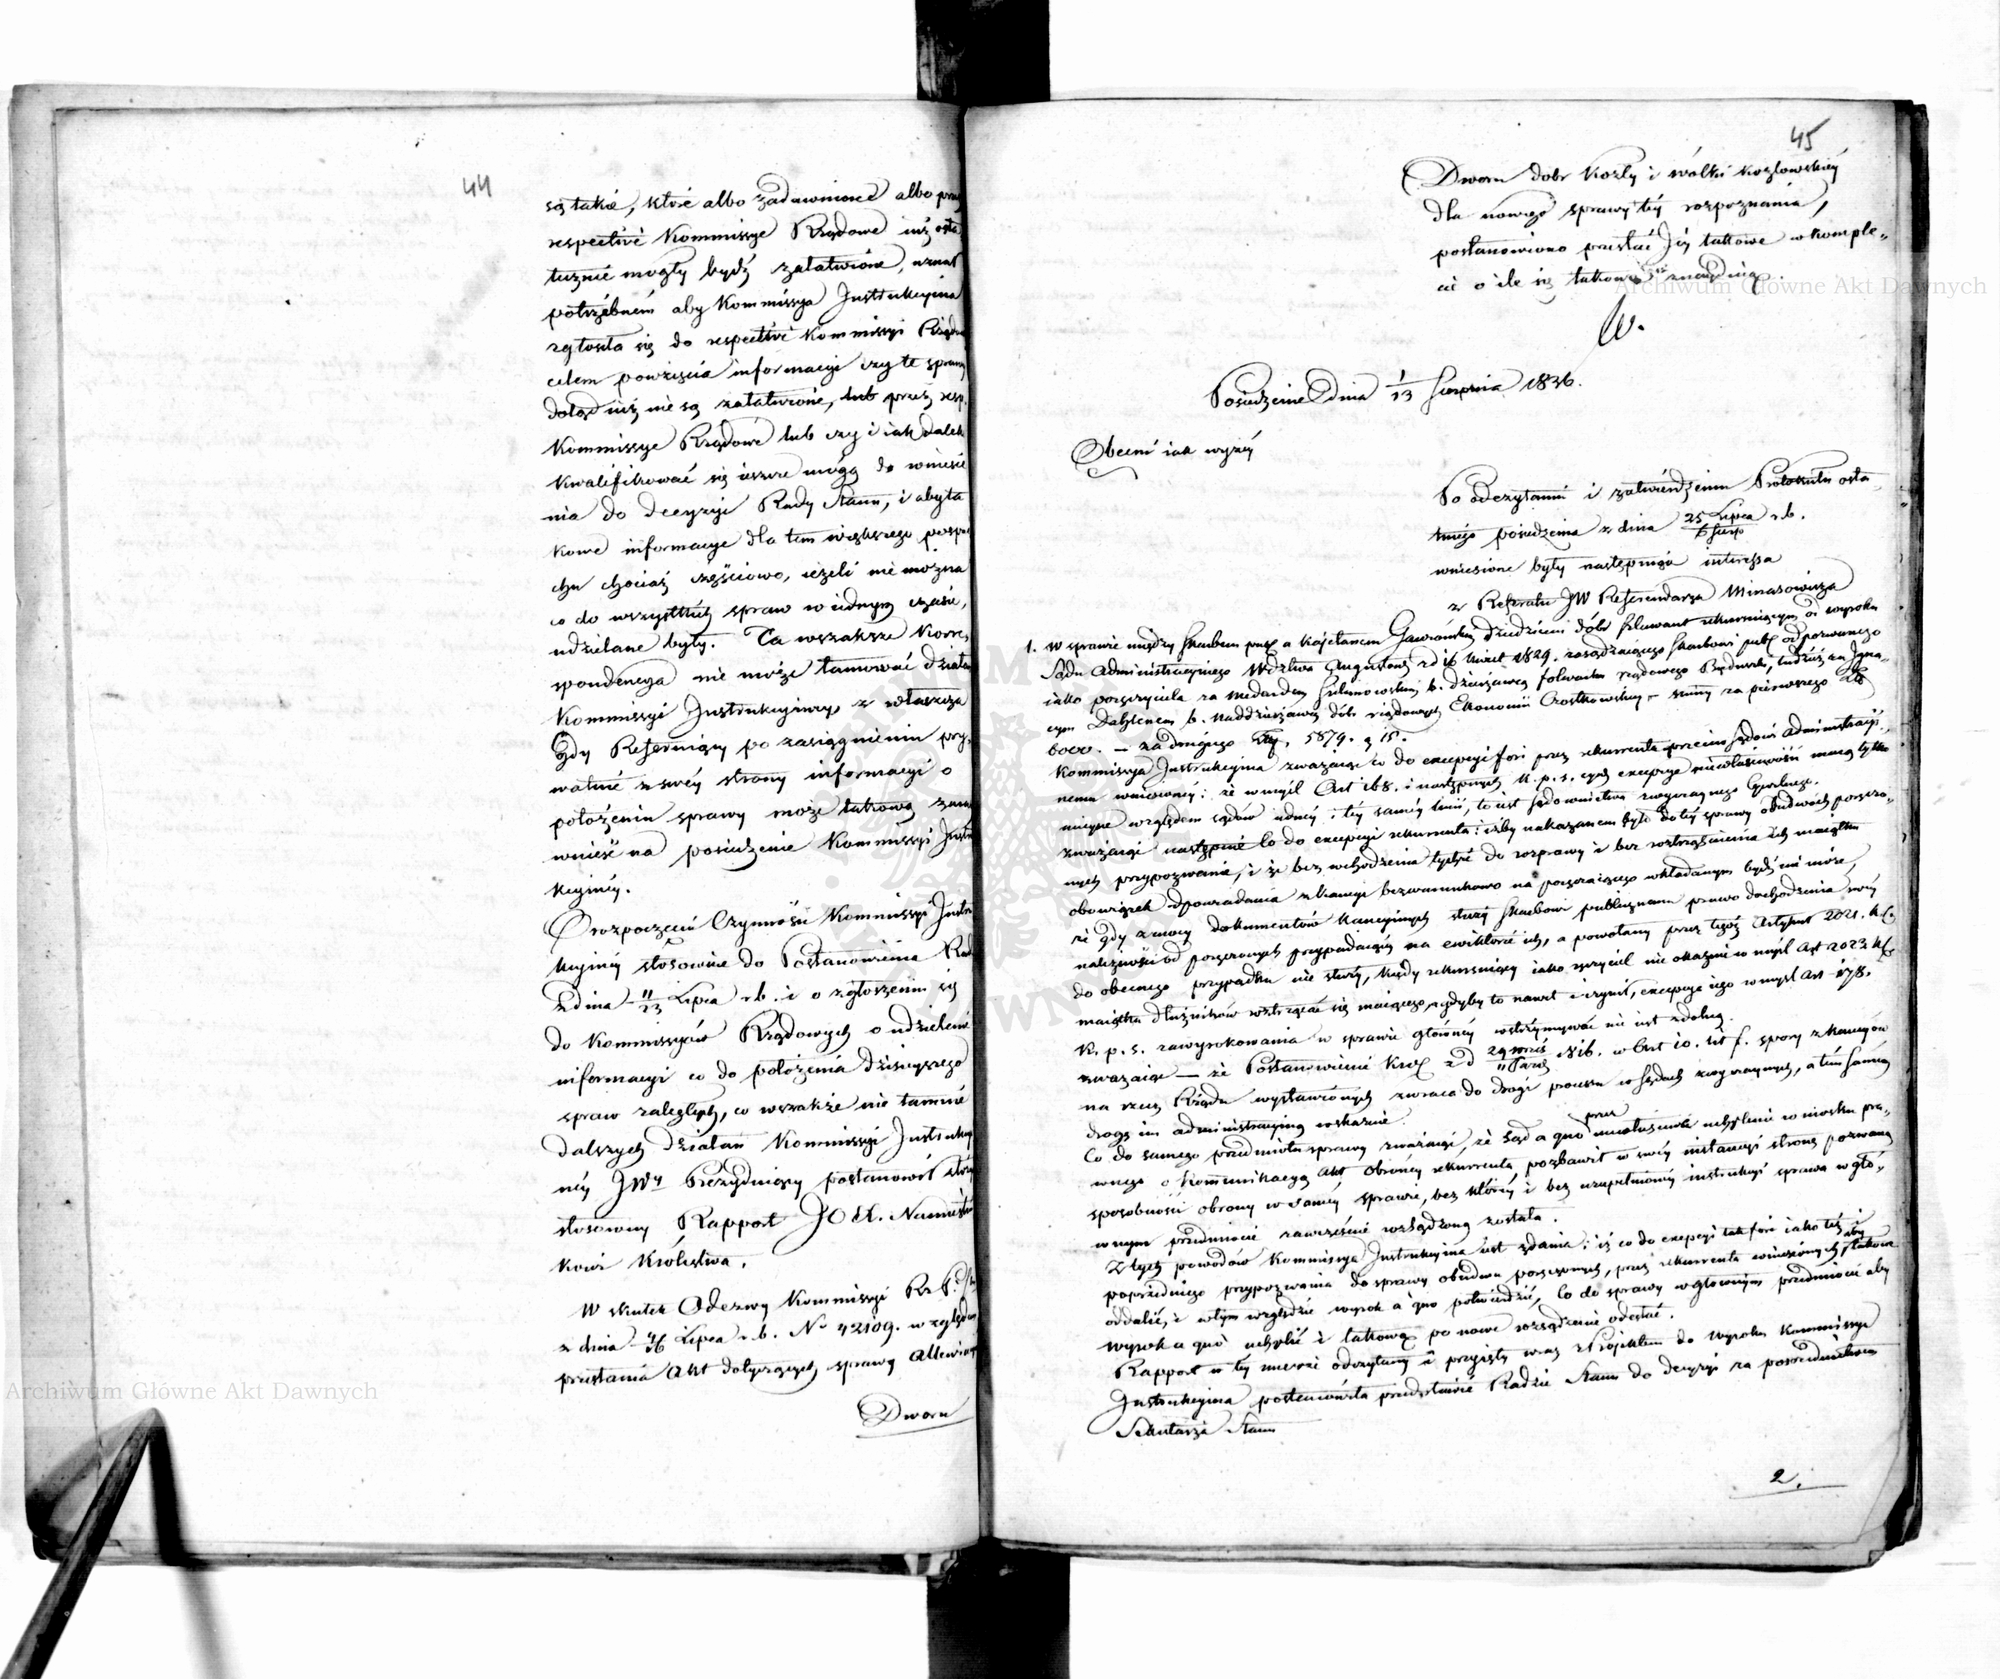 44
są takie, które albo zadawnione albo przez
respective Kommissye Rządowe iuż osta
tecznie mogły bydź załatwione, uznał
potrzebnem aby Kommissya Instrukcyina
zgłosiła się do respective Kommissyi Rządow
celem powzięcia informacyi czy te sprawy
dotąd iuż nie są załatwione, lub przez resp.
Kommissye Rządowe lub czy i iak dalek
kwalifikować się ieszcze mogą do wniesie
nia do decyzyi Rady Stanu, i aby ta
kowe informacye dla tem większego pospie
chu chociaż częściowo, ieżeli nie można
co do wszystkich spraw w iednym czasie,
udzielane były. Ta wszakże korre,
spondencya nie może tamować działań
Kommissyi Instrukcyiney, zwłaszcza
gdy Referuiący po zasiągnieniu pry,
watnie z swéy strony informacyi o
położeniu sprawy może takową zaraz
wnieść na posiedzenie Kommissyi Instru
kcyinéy.
O rozpoczęciu Czynności Kommissyi Instru
kcyinéy stosownie do Postanowienia Rad
z dnia 11/23 Lipca r.b. i o zgłoszeniu się
do Kommissyów Rządowych o udzielenie
informacyi co do położenia dzisieyszego
spraw zaległych, co wszakże nie tamuie
dalszych działań Kommissyi Instrukcyi
néy JWy Prezyduiący postanowił złożyć
stosowny Rapport JO X. Namiestni
kowi Królestwa.
W skutek Odezwy Kommissyi Rz P. i Sk
z dnia 4/16 Lipca r.b. No 42109. względem
przesłania Akt dotyczących sprawy Allewiacyi
Dworu
45
Dworu dobr Kozły i wólki Kozłowskiéy
dla nowego sprawy téy rozpoznania,
postanowiono przesłać Jéy takowe w komple„
cie o ile się takowe znayduią.
W.
Posiedzenie dnia 1/13 Sierpnia 1836.
Obecni iak wyżéy
Po odczytaniu i zatwierdzeniu Protokułu osta„
tniego posiedzenia z dnia 25 Lipca/6 Sierp r.b.
wniesione były następuiące interessa
z Referatu JW Referendarza Minasowicza
1. W sprawie między Skarbem publ a Kajetanem Gawrońskim dziedzicem dóbr rekurruiącym od wyroku
Sądu Administracyinego Wdztwa Augustows z d 16 Kwiet 1829. zasądzaiącego Skarbowi publ od pozwanego
iako poręczyciela za Medardem b. dzierżawcą folwarku rządowego tudzież za Igna„
cym b. Naddzierżawcą dóbr rządowych Ekonomii — summy za pierwszego Złp
6000. — za drugiego Złp. 5879. g 15.
Kommissya Instrukcyina zważaiąc co do excepcyi fori przez rekurrenta przeciw Sądowi Administracyi,
nemu wniesionéy: że w myśl Art 168. i następnych K. p. s. exepcye niewłaściwości maią tylko
mieysce względem sądów iednéy i téy saméy linii, to iest sądownictwa zwyczaynego Cywilnego.
zważaiąc następnie Co do excepcyi rekurrenta: iżby nakazanem było do téy sprawy obudwóch poręczo„
nych przypozwanie, i że bez wchodzenia tychże do rozprawy i bez roztrząśnienia ich maiątku
obowiązek odpowiadania z kaucyi bezwarunkowo na poręczaiącego wkładanym bydź nie może,
że gdy z mocy dokumentów kaucyinych służy Skarbowi publicznemu prawo dochodzenia swéy
należności od poręczonych przypadaiącéy na ewiktorze ich, a powołany przez tegóż Artykuł 2021. K.C.
do obecnego przypadku nie służy, kiedy rekurruiący iako ręczyciel nie okazuie w myśl Art 2023 K.C.
maiątku dłużników roztrząsać się maiącego, a gdyby to nawet i czynił, excepcya iego w myśl Art 178.
K. p. s. zawyrokowania w sprawie głównéy wstrzymywać nie iest zdolną.
zważaiąc — że Postanowienie Król z d w Art 10. lit f. spory z kaucyów
na rzecz Rządu wystawionych zwraca do drogi processu w Sądach zwyczaynych, a tém saméy
drogę im administracyiną wskazuie.
Co do samego przedmiotu sprawy zważaiąc, że Sąd a quo przez niewłaściwe uchylenie wniosku pra„
wnego o kommunikacyą Akt Obrońcy rekurrenta, pozbawił w swéy instancyi stronę pozwaną
sposobności obrony w saméy sprawie, bez któréy i bez uzupełnionéy instrukcyi sprawa w głó„
wnym przedmiocie zawcześnie rozsądzoną została.
Z tych powodów Kommissya Instrukcyina iest zdania: iż co do excepcyi tak fori iako też i
poprzedniego przypozwania do sprawy obudwu poręczonych, przez rekurrenta wniesionych, aby takowe
oddalić, i w tym względzie wyrok a quo potwierdzić, Co do sprawy w głównym przedmiocie aby
wyrok a quo uchylić i takową po nowe rozsądzenie odesłać.
Rapport w téy mierze odczytany i przyięty wraz z Projektem do wyroku Kommissya
Instrukcyina postanowiła przedstawić Radzie Stanu do decyzyi za pośrednictwem
Sekretarza Stanu
2.
Archiwum Główne Akt Dawnych
Archiwum Główne Akt Dawnych